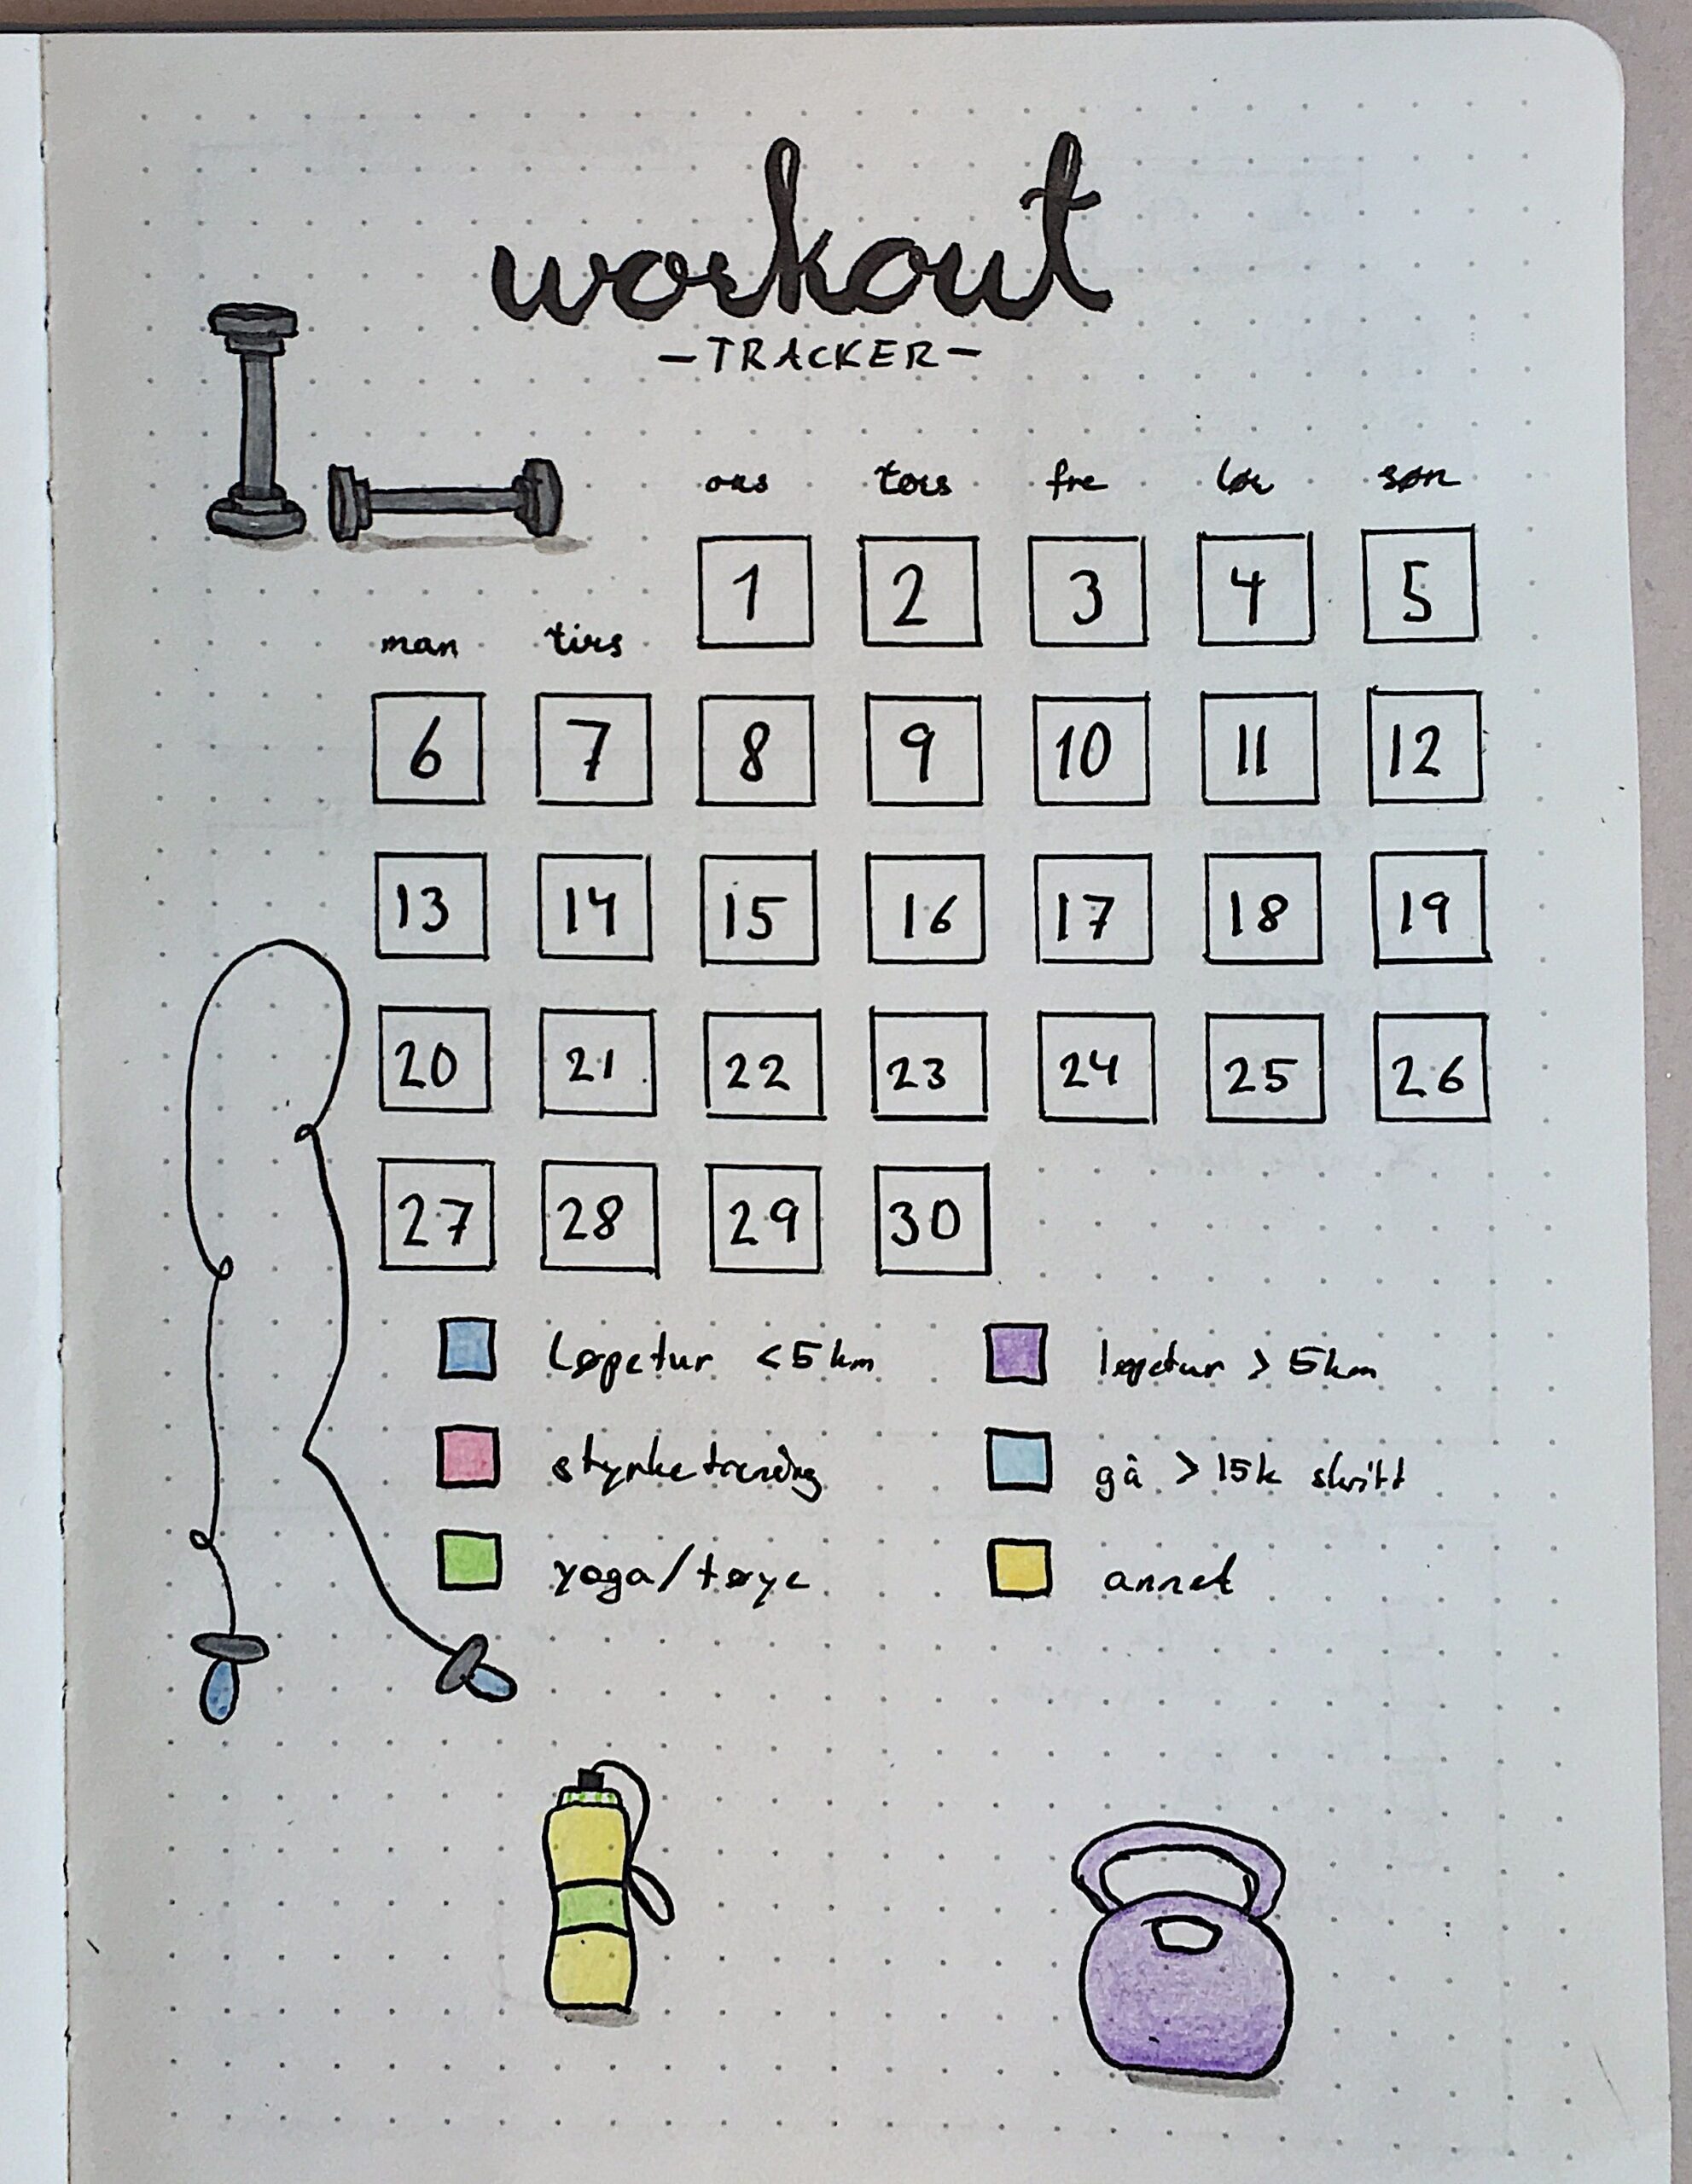 workout
-TRACKER-
ons tors fre lør søn
1 2 3 4 5
man tirs
6 7 8 9 10 11 12
13 14 15 16 17 18 19
20 21 22 23 24 25 26
27 28 29 30
Løpetur <5km løpetur > 5km
styrketrening gå > 15k skritt
yoga/tøye annet